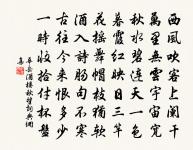 西風吹客上闌干
萬里無雲宇宙寬
秋水碧連天一色
暮霞紅映日三竿
花搖舞帽枝猶軟
酒入詩腸句不寒
古往今來恨多少
一時收拾付杯盤
華岳酒樓秋望詞典網
集